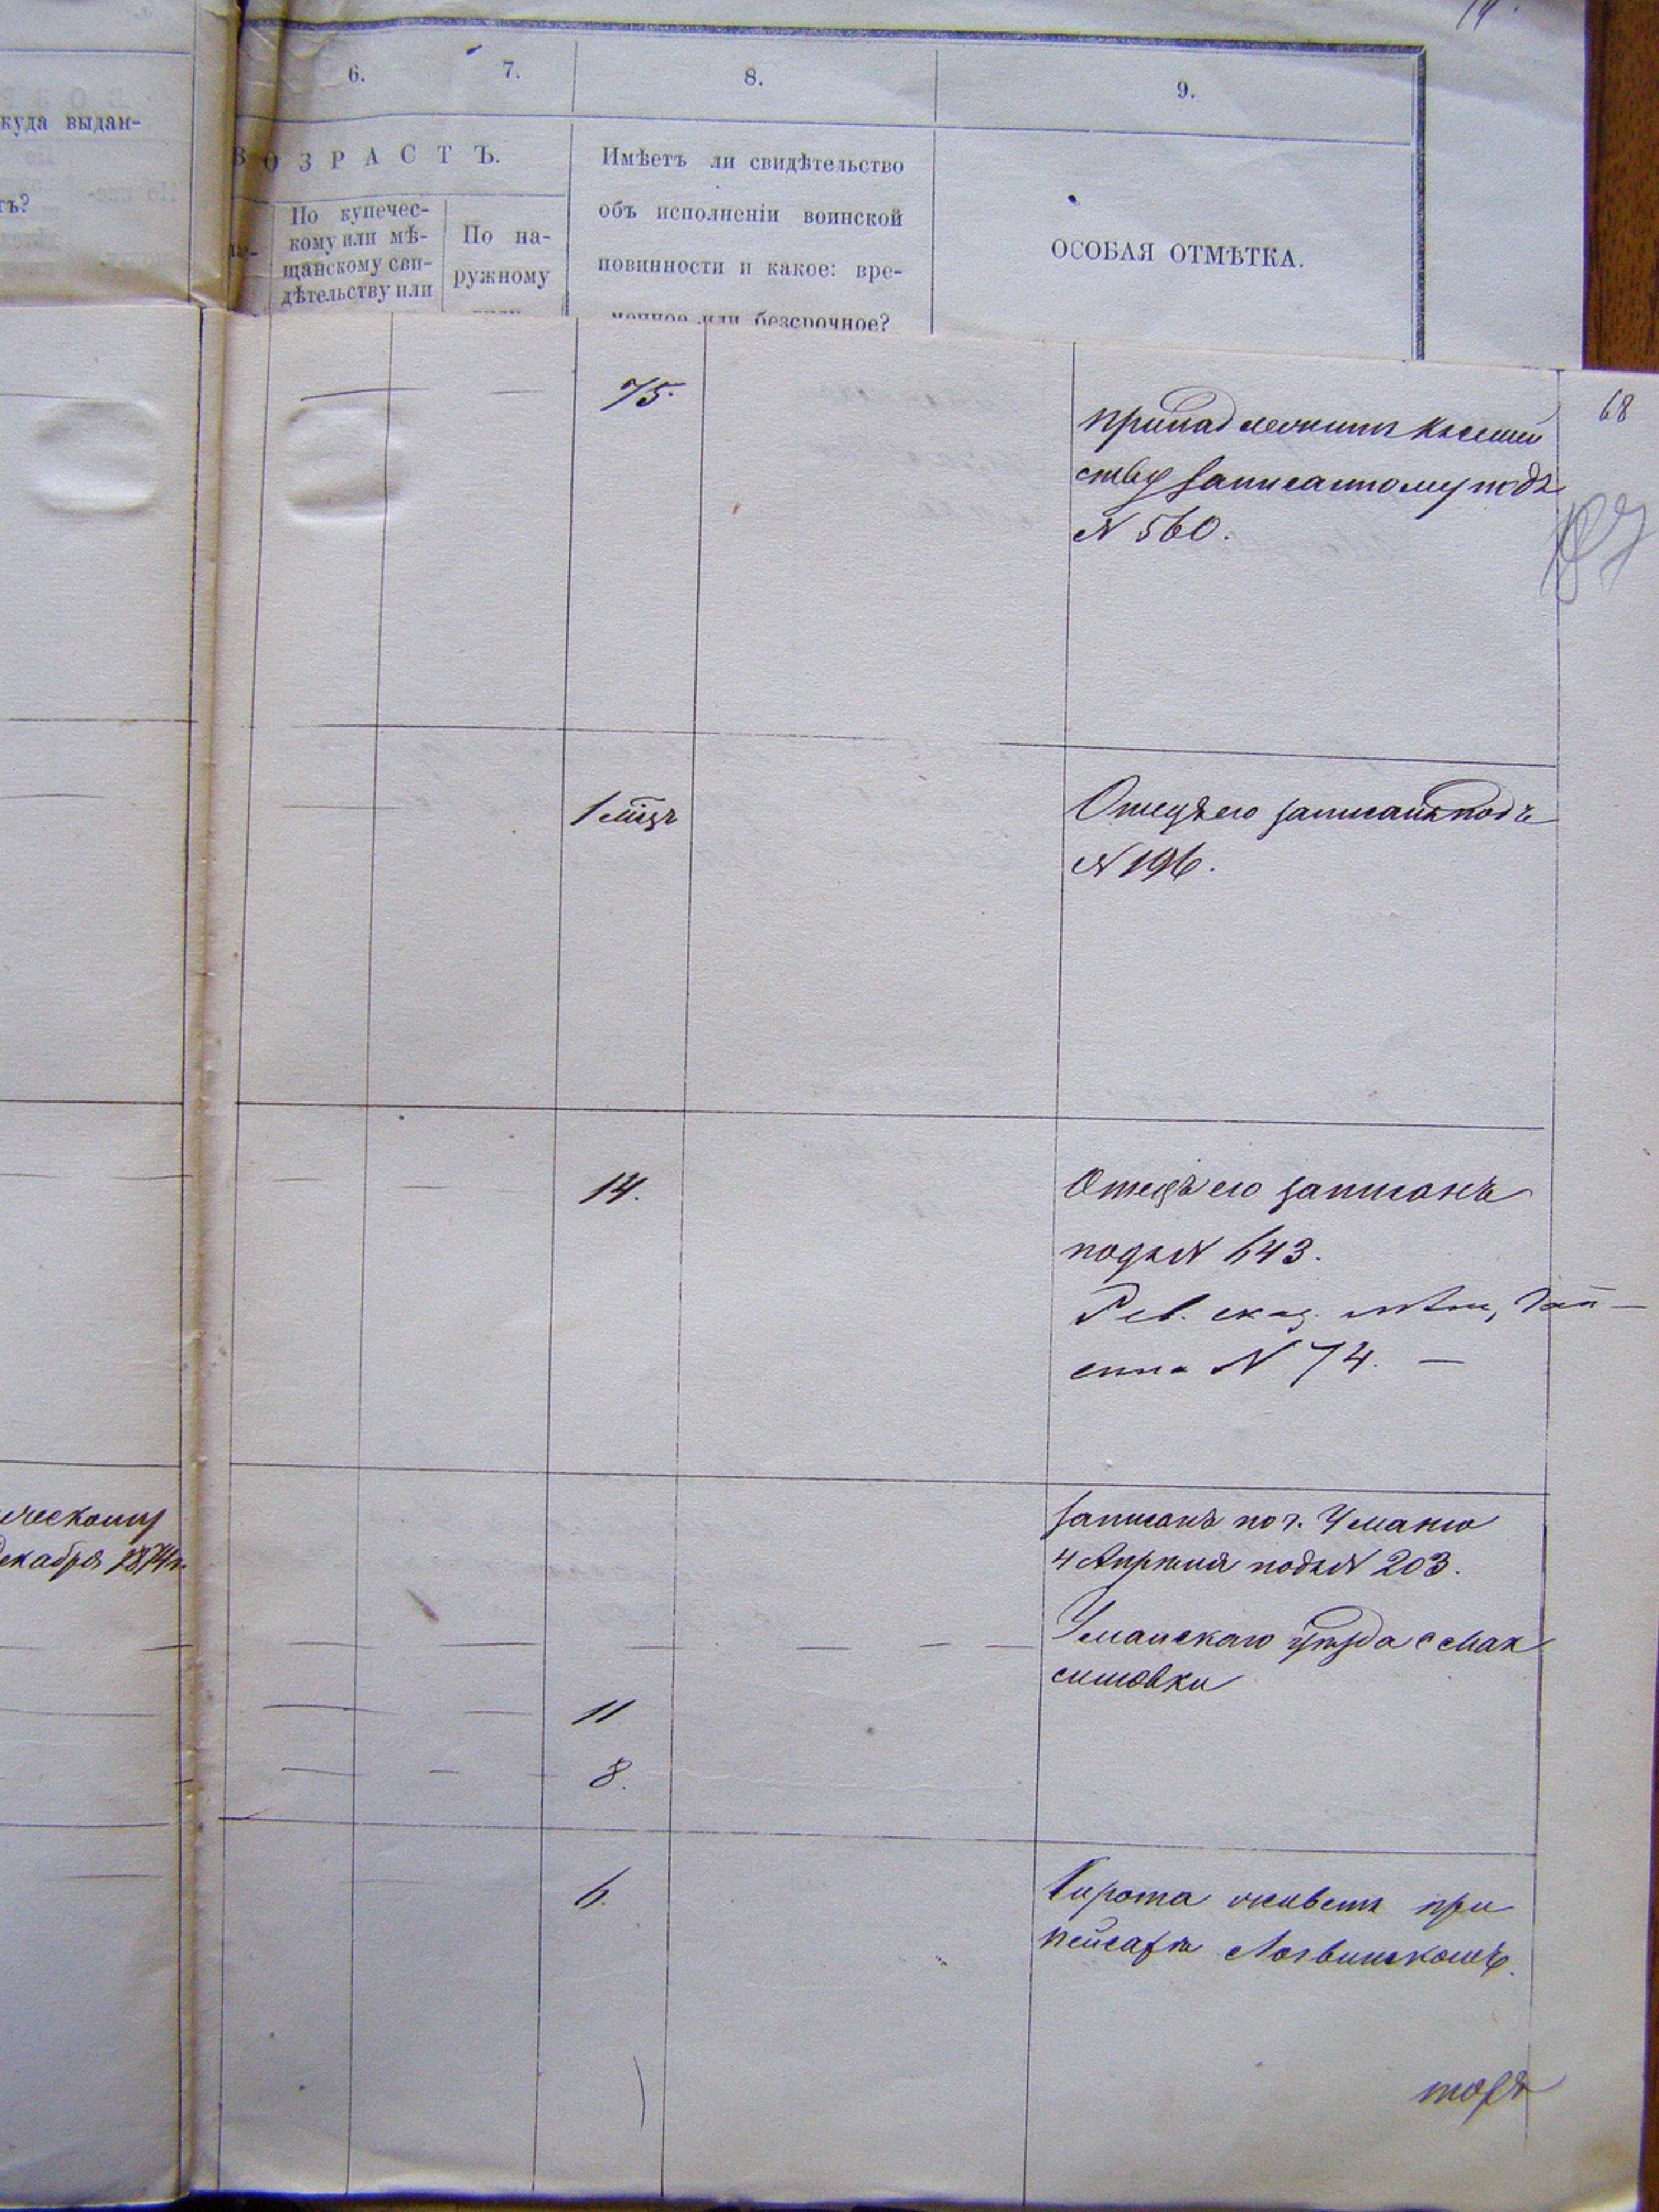 6.
7.
8.
9.
куда выдан-
тъ?
ВОЗРАСТЪ.
По купечес-
кому или мѣ-
щанскому сви-
дѣтельству или
По на-
ружному
Имѣетъ ли свидѣтельство
объ исполненіи воинской
повинности и какое: вре-
менное или безсрочное?
ОСОБАЯ ОТМѢТКА.
68
75.
принадлежитъ къ семей
ству записанному подъ
N 560.
1 мѣц
Отецъ его записанъ подъ
N 196.
14.
Отецъ его записанъ
подъ N 643.
Рев. сказ.
N 74. —
ческому
декабря 1874 г.
записанъ по г. Уманю
4 Апрѣля подъ N 203.
Уманскаго уѣзда с Мак
симовки
11
8.
6.
Сирота живетъ при